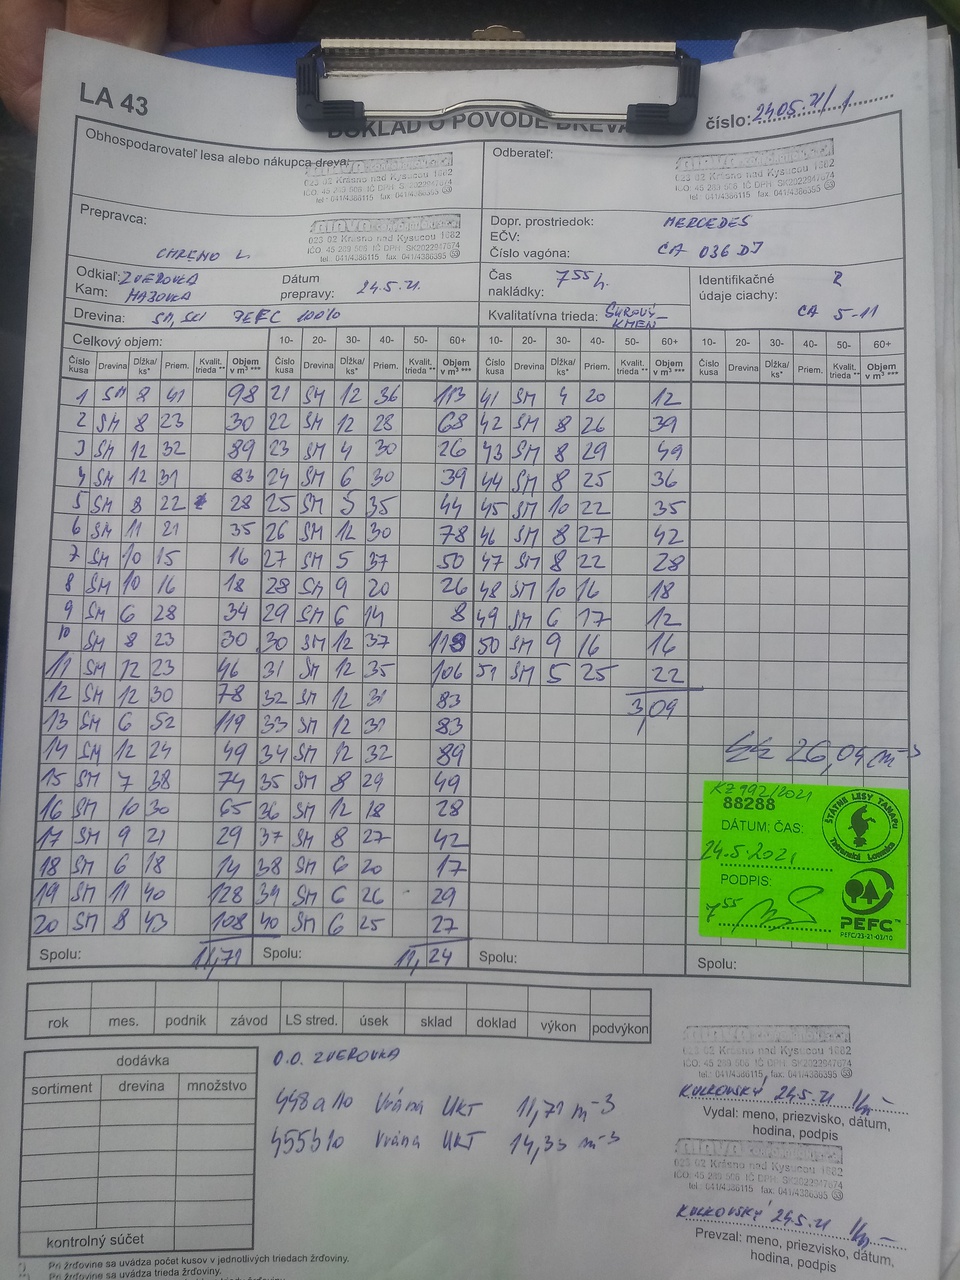 LA 43
DOKLAD O PÔVODE DREVA
číslo: 2405.21/1
Obhospodarovateľ lesa alebo nákupca dreva:
023 02 Krásno nad Kysucou 1682
IČO: 45 289 506 IČ DPH: SK2022947674
tel.: 041/4386115 fax: 041/4386395
Odberateľ:
023 02 Krásno nad Kysucou 1682
IČO: 45 289 506 IČ DPH: SK2022947674
tel.: 041/4386115 fax: 041/4386395
Prepravca:
023 02 Krásno nad Kysucou 1682
IČO: 45 289 506 IČ DPH: SK2022947674
tel.: 041/4386115 fax: 041/4386395
CHRENO L.
Dopr. prostriedok: MERCEDES
EČV:
Číslo vagóna: CA 036 DJ
Odkiaľ: ZVEROVKA
Kam: HABOVKA
Dátum prepravy: 24.5.21.
Čas nakládky: 7 55 h.
Identifikačné údaje ciachy: 2
CA 5-11
Drevina: SM, PEFC 100%
Kvalitatívna trieda: SUROVÝ KMEŇ
Celkový objem: 10- 20- 30- 40- 50- 60+ 10- 20- 30- 40- 50- 60+ 10- 20- 30- 40- 50- 60+
Číslo kusa Drevina Dĺžka/ks* Priem. Kvalit. trieda ** Objem v m³ *** Číslo kusa Drevina Dĺžka/ks* Priem. Kvalit. trieda ** Objem v m³ *** Číslo kusa Drevina Dĺžka/ks* Priem. Kvalit. trieda ** Objem v m³ *** Číslo kusa Drevina Dĺžka/ks* Priem. Kvalit. trieda ** Objem v m³ ***
1 SM 8 41 98 21 SM 12 36 113 41 SM 4 20 12
2 SM 8 23 30 22 SM 12 28 68 42 SM 8 26 39
3 SM 12 32 89 23 SM 4 30 26 43 SM 8 29 49
4 SM 12 31 83 24 SM 6 30 39 44 SM 8 25 36
5 SM 8 22 28 25 SM 5 35 44 45 SM 10 22 35
6 SM 11 21 35 26 SM 12 30 78 46 SM 8 27 42
7 SM 10 15 16 27 SM 5 37 50 47 SM 8 22 28
8 SM 10 16 18 28 SM 9 20 26 48 SM 10 16 18
9 SM 6 28 34 29 SM 6 14 8 49 SM 6 17 12
10 SM 8 23 30 30 SM 12 37 119 50 SM 9 16 16
11 SM 12 23 46 31 SM 12 35 106 51 SM 5 25 22
12 SM 12 30 78 32 SM 12 31 83
3,09
13 SM 6 52 119 33 SM 12 31 83
14 SM 12 24 49 34 SM 12 32 89
26,04 m-3
15 SM 7 38 74 35 SM 8 29 49
16 SM 10 30 65 36 SM 12 18 28
17 SM 9 21 29 37 SM 8 27 42
18 SM 6 18 14 38 SM 6 20 17
19 SM 11 40 128 39 SM 6 26 29
20 SM 8 43 108 40 SM 6 25 27
KZ 992/2021
88288
ŠTÁTNE LESY TANAPU
Tatranská Lomnica
DÁTUM; ČAS:
24.5.2021
PODPIS:
7 55
PEFC™
PEFC/23-21-03/10
Spolu: 11,71 Spolu: 11,24 Spolu: Spolu:
rok mes. podnik závod LS stred. úsek sklad doklad výkon podvýkon
dodávka
sortiment drevina množstvo
kontrolný súčet
O.O. ZVEROVKA
448a10 Vrána UKT 11,71 m-3
455b10 Vrána UKT 14,33 m-3
023 02 Krásno nad Kysucou 1682
IČO: 45 289 506 IČ DPH: SK2022947674
tel.: 041/4386115, fax: 041/4386395
KULKOVSKÝ 24.5.21
Vydal: meno, priezvisko, dátum,
hodina, podpis
023 02 Krásno nad Kysucou 1682
IČO: 45 289 506 IČ DPH: SK2022947674
tel.: 041/4386115 fax: 041/4386395
KULKOVSKÝ 24.5.21
Prevzal: meno, priezvisko, dátum,
hodina, podpis
Pri žrďovine sa uvádza počet kusov v jednotlivých triedach žrďoviny.
Pri žrďovine sa uvádza trieda žrďoviny.